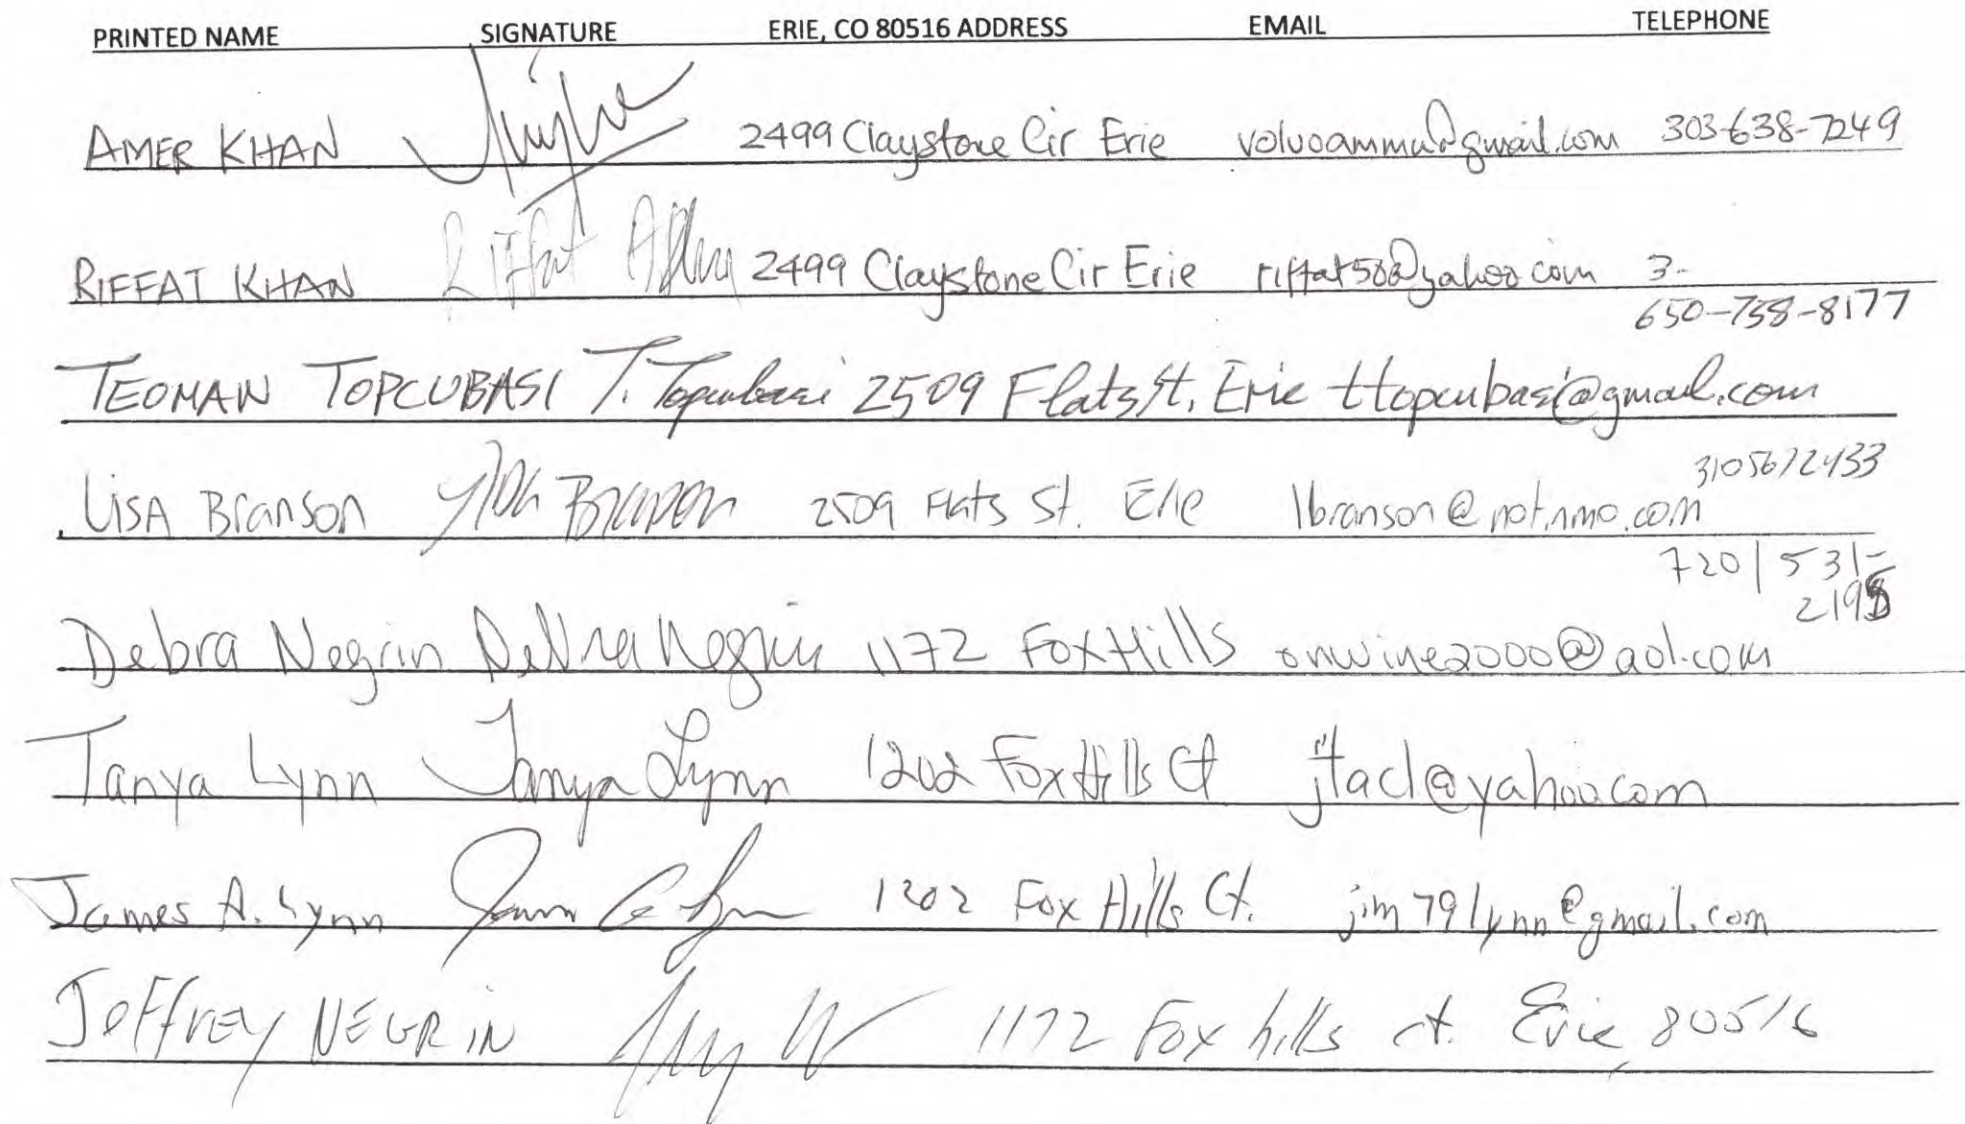 PRINTED NAME SIGNATURE ERIE, CO 80516 ADDRESS EMAIL TELEPHONE
AMER KHAN 2499 Claystone Cir Erie volvoammu@gmail.com 303-638-7249
RIFFAT KHAN Riffat 2499 Claystone Cir Erie riffat58@yahoo.com 3-
650-758-8177
TEOMAN TOPCUBASI T. Topcubasi 2509 Flats St. Erie ttopcubasi@gmail.com
3105672433
LISA Branson Branson 2509 Flats St. Erie
720 | 531-
219
Debra Negrin Debra Negrin 1172 Fox Hills onwine2000@aol.com
Tanya Lynn Tanya Lynn 1202 Fox Hills Ct jtacl@yahoo.com
James A. Lynn James A Lynn 1202 Fox Hills Ct. jim79lynn@gmail.com
JEFFREY NEGRIN 1172 Fox hills ct. Erie, 80516